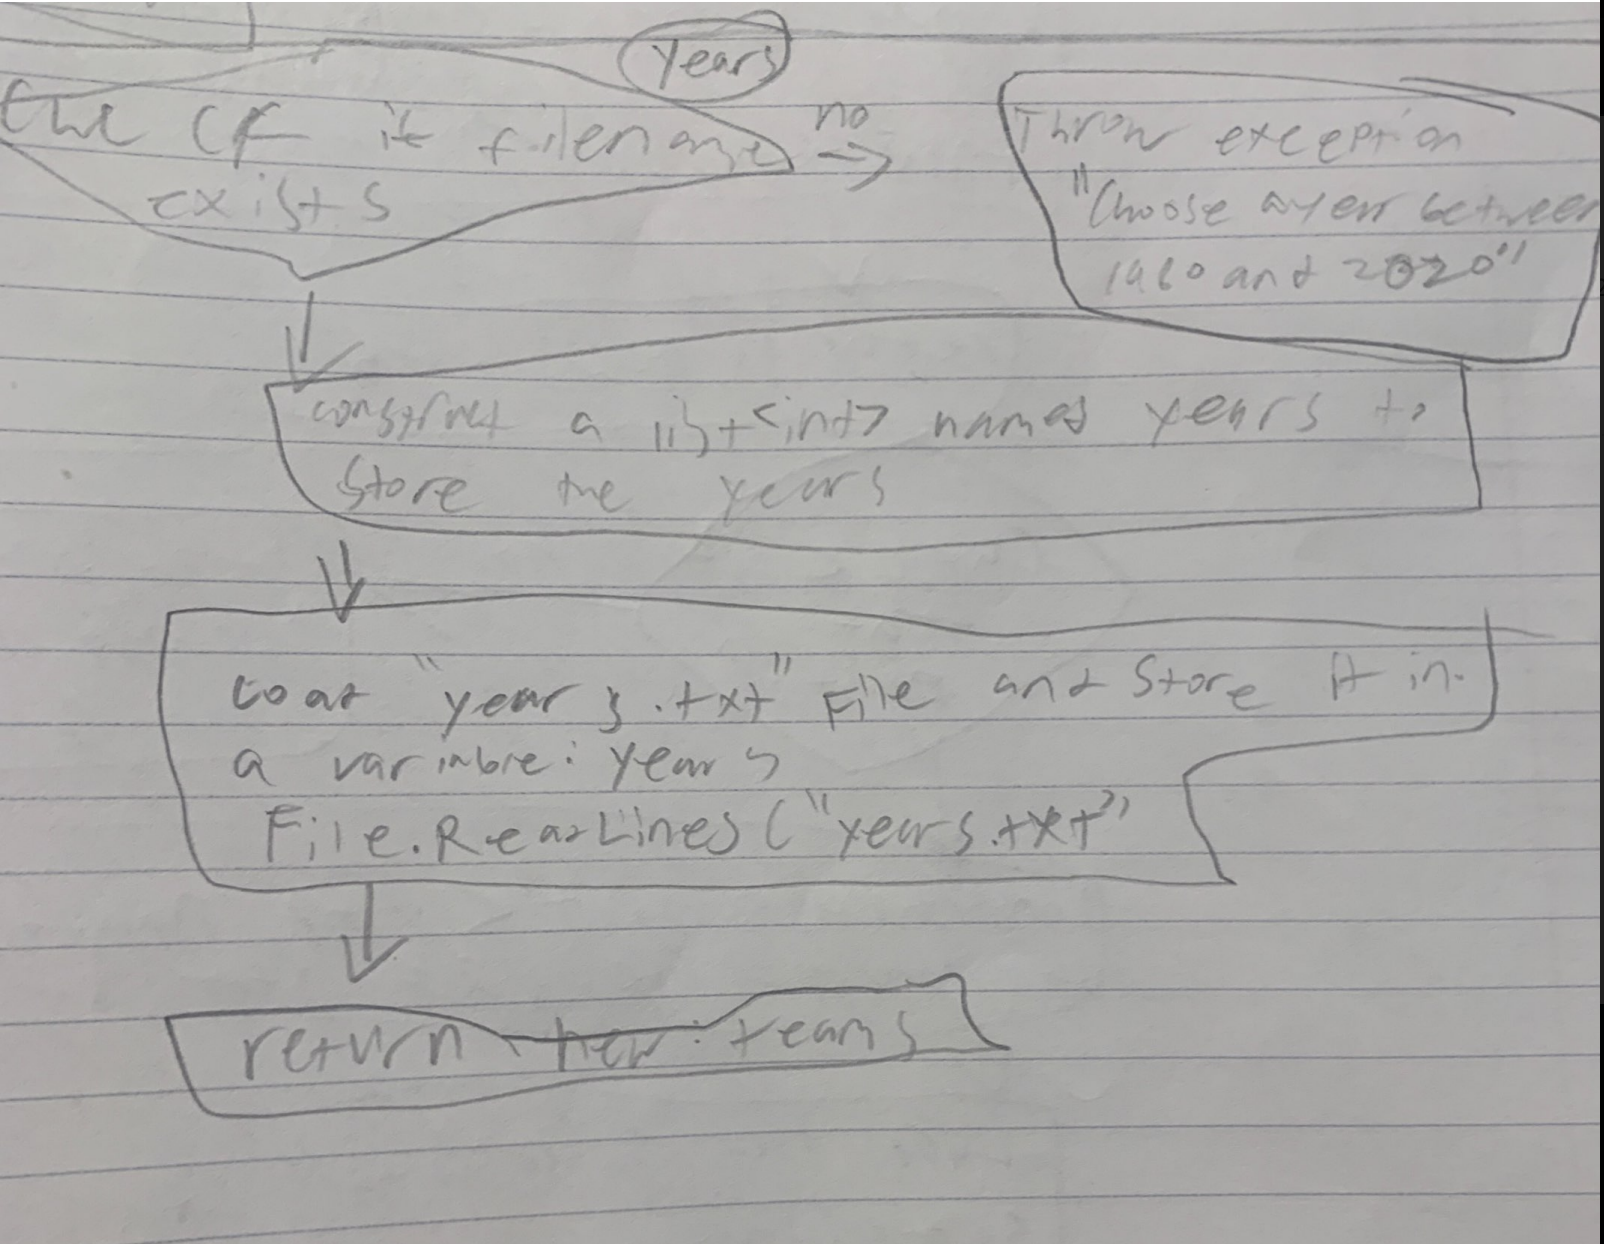 years
if filename
exists
no
Throw exception
"Choose a year between
1960 and 2020"
construct a list<int> names years to
store the years
Load "years.txt" File and Store it in
a variable: years
File.ReadLines("years.txt"
return new: teams